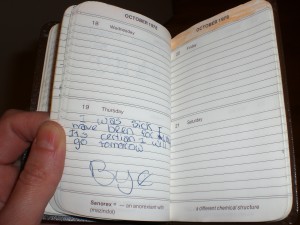 OCTOBER 1978
18 Wednesday
19 Thursday
I was sick I
have been for
It's certion I will
go tomorrow
Bye
Sanorex — (an anorexiant with
OCTOBER 1978
Friday
21 Saturday
a different chemical structure